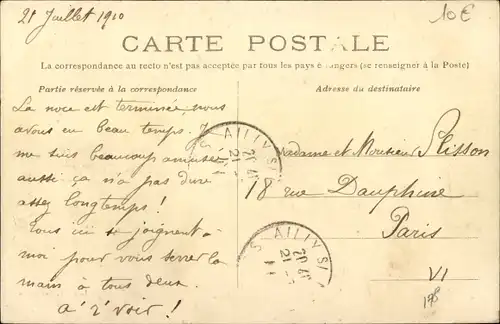 21 Juillet 1910
10€
CARTE POSTALE
La correspondance au recto n'est pas acceptée par tous les pays étrangers (se renseigner à la Poste)
Partie réservée à la correspondance
Adresse du destinataire
La noce est terminée, nous
avons eu beau temps. Je
me suis beaucoup amusée
aussi ça n'a pas duré
assez longtemps!
Tous ici se joignent à
moi pour vous serrer la
main à tous deux.
à r'voir!
AILLY S
Madame et Monsieur
18 rue Dauphine
Paris
VI
AILLY S